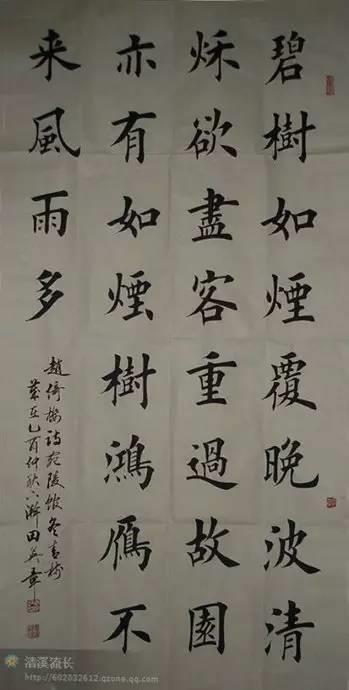 碧樹如煙覆晚波清
秋欲盡客重過故園
亦有如煙樹鴻鴈不
来風雨多
趙倚樓詩宛陵館冬青樹
歲在乙酉仲秋下澣田英章
清溪流长
http://602032612.qzone.qq.com